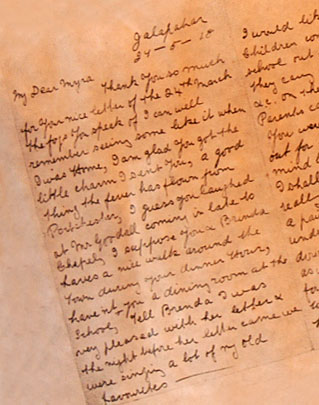 Galapahar
24-5-18
My Dear Myra Thank You so much
for You nice letter of the 24th March
the Tops You speak of I can well
remember seeing some like it when
I was Home, I am glad You got the
little charm I sent You, a good
thing the fever has flown from
Portchester, I guess you laughed
at Mr Goodall coming in late to
Chapel, I suppose You & Brenda
haves a nice walk around the
Town during your dinner Hour,
havent You a dining room at the
School, Tell Brenda I was
very pleased with her letter &
the night before her letter came we
were singing a lot of my old
favourites
I would
Children
school out
They
&c. on the
Parents
You
out for
mind
I shall
really
a
down
as
w